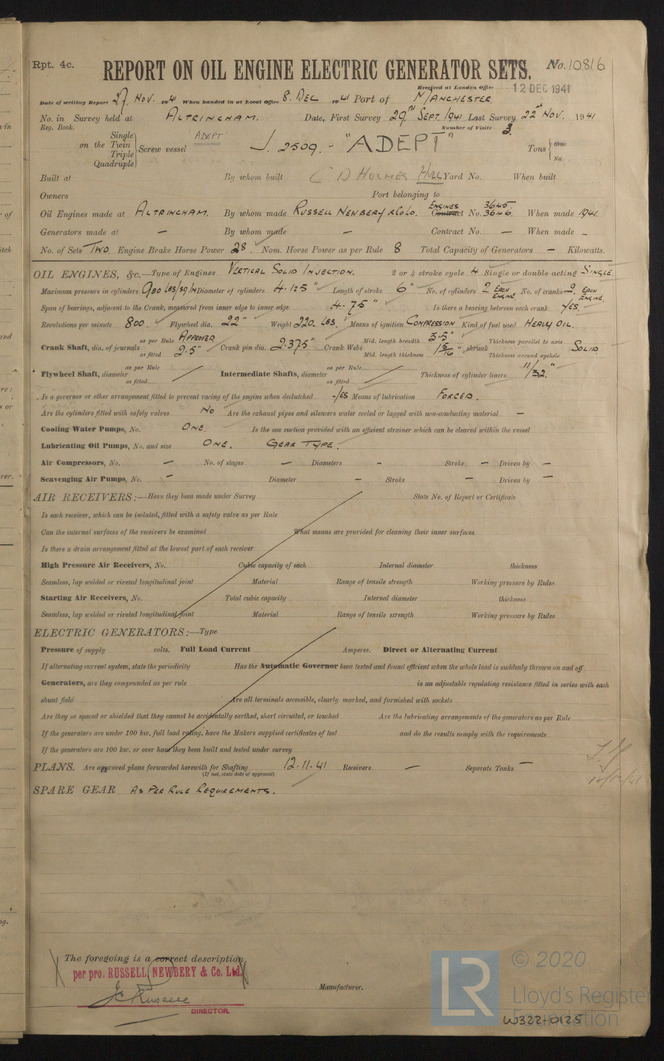 Rpt. 4c. REPORT ON OIL ENGINE ELECTRIC GENERATOR SETS. No. 10816
Received at London Office 12 DEC 1941
Date of writing Report 27. Nov. 1941 When handed in at Local Office 8. DEC 1941 Port of MANCHESTER
No. in Survey held at ALTRINCHAM. Date, First Survey 29TH SEPT. 1941 Last Survey 22nd NOV. 1941
Reg. Book. Number of Visits 3
Single
on the Twin Screw vessel ADEPT J. 2509. - "ADEPT" Tons Gross
Triple Net
Quadruple
Built at By whom built C D HOLMES HULL Yard No. When built
Owners Port belonging to
Oil Engines made at ALTRINCHAM. By whom made RUSSELL NEWBERY & Co Lo. ENGINES Contract No. 3645. 3646. When made 1941.
Generators made at - By whom made - Contract No. - When made -
No. of Sets TWO. Engine Brake Horse Power 28 Nom. Horse Power as per Rule 8 Total Capacity of Generators - Kilowatts.
OIL ENGINES, &c.—Type of Engines VERTICAL SOLID INJECTION. 2 or 4 stroke cycle 4 Single or double acting SINGLE.
Maximum pressure in cylinders 900 LBS/SQ/IN Diameter of cylinders 4.125" Length of stroke 6" No. of cylinders 2 EACH ENGINE. No. of cranks 2. EACH ENGINE.
Span of bearings, adjacent to the Crank, measured from inner edge to inner edge 4.75" Is there a bearing between each crank YES.
Revolutions per minute 800. Flywheel dia. 22" Weight 220 LBS. Means of ignition COMPRESSION Kind of fuel used HEAVY OIL.
Crank Shaft, dia. of journals as per Rule APPROVED as fitted 2.5" Crank pin dia. 2.375" Crank Webs Mid. length breadth 3.5" Mid. length thickness 15/16" shrunk Thickness parallel to axis Thickness around eyehole SOLID
Flywheel Shaft, diameter as per Rule as fitted Intermediate Shafts, diameter as per Rule as fitted Thickness of cylinder liners 11/32"
Is a governor or other arrangement fitted to prevent racing of the engine when declutched YES Means of lubrication FORCED.
Are the cylinders fitted with safety valves NO Are the exhaust pipes and silencers water cooled or lagged with non-conducting material -
Cooling Water Pumps, No. ONE. Is the sea suction provided with an efficient strainer which can be cleared within the vessel
Lubricating Oil Pumps, No. and size ONE. GEAR TYPE.
Air Compressors, No. - No. of stages - Diameters - Stroke - Driven by -
Scavenging Air Pumps, No. - Diameter - Stroke - Driven by -
AIR RECEIVERS:—Have they been made under Survey State No. of Report or Certificate
Is each receiver, which can be isolated, fitted with a safety valve as per Rule
Can the internal surfaces of the receivers be examined What means are provided for cleaning their inner surfaces
Is there a drain arrangement fitted at the lowest part of each receiver
High Pressure Air Receivers, No. Cubic capacity of each Internal diameter thickness
Seamless, lap welded or riveted longitudinal joint Material Range of tensile strength Working pressure by Rules
Starting Air Receivers, No. Total cubic capacity Internal diameter thickness
Seamless, lap welded or riveted longitudinal joint Material Range of tensile strength Working pressure by Rules
ELECTRIC GENERATORS:—Type
Pressure of supply volts. Full Load Current Amperes. Direct or Alternating Current
If alternating current system, state the periodicity Has the Automatic Governor been tested and found efficient when the whole load is suddenly thrown on and off
Generators, are they compounded as per rule is an adjustable regulating resistance fitted in series with each
shunt field Are all terminals accessible, clearly marked, and furnished with sockets
Are they so spaced or shielded that they cannot be accidentally earthed, short circuited, or touched Are the lubricating arrangements of the generators as per Rule
If the generators are under 100 kw. full load rating, have the Makers supplied certificates of test and do the results comply with the requirements
If the generators are 100 kw. or over have they been built and tested under survey
PLANS. Are approved plans forwarded herewith for Shafting 12.11.41 Receivers - Separate Tanks -
(If not, state date of approval)
SPARE GEAR AS PER RULE REQUIREMENTS.
The foregoing is a correct description,
per pro. RUSSELL NEWBERY & Co. Ltd.
Manufacturer.
DIRECTOR.
LR © 2020
Lloyd's Register
Foundation
W322-0125